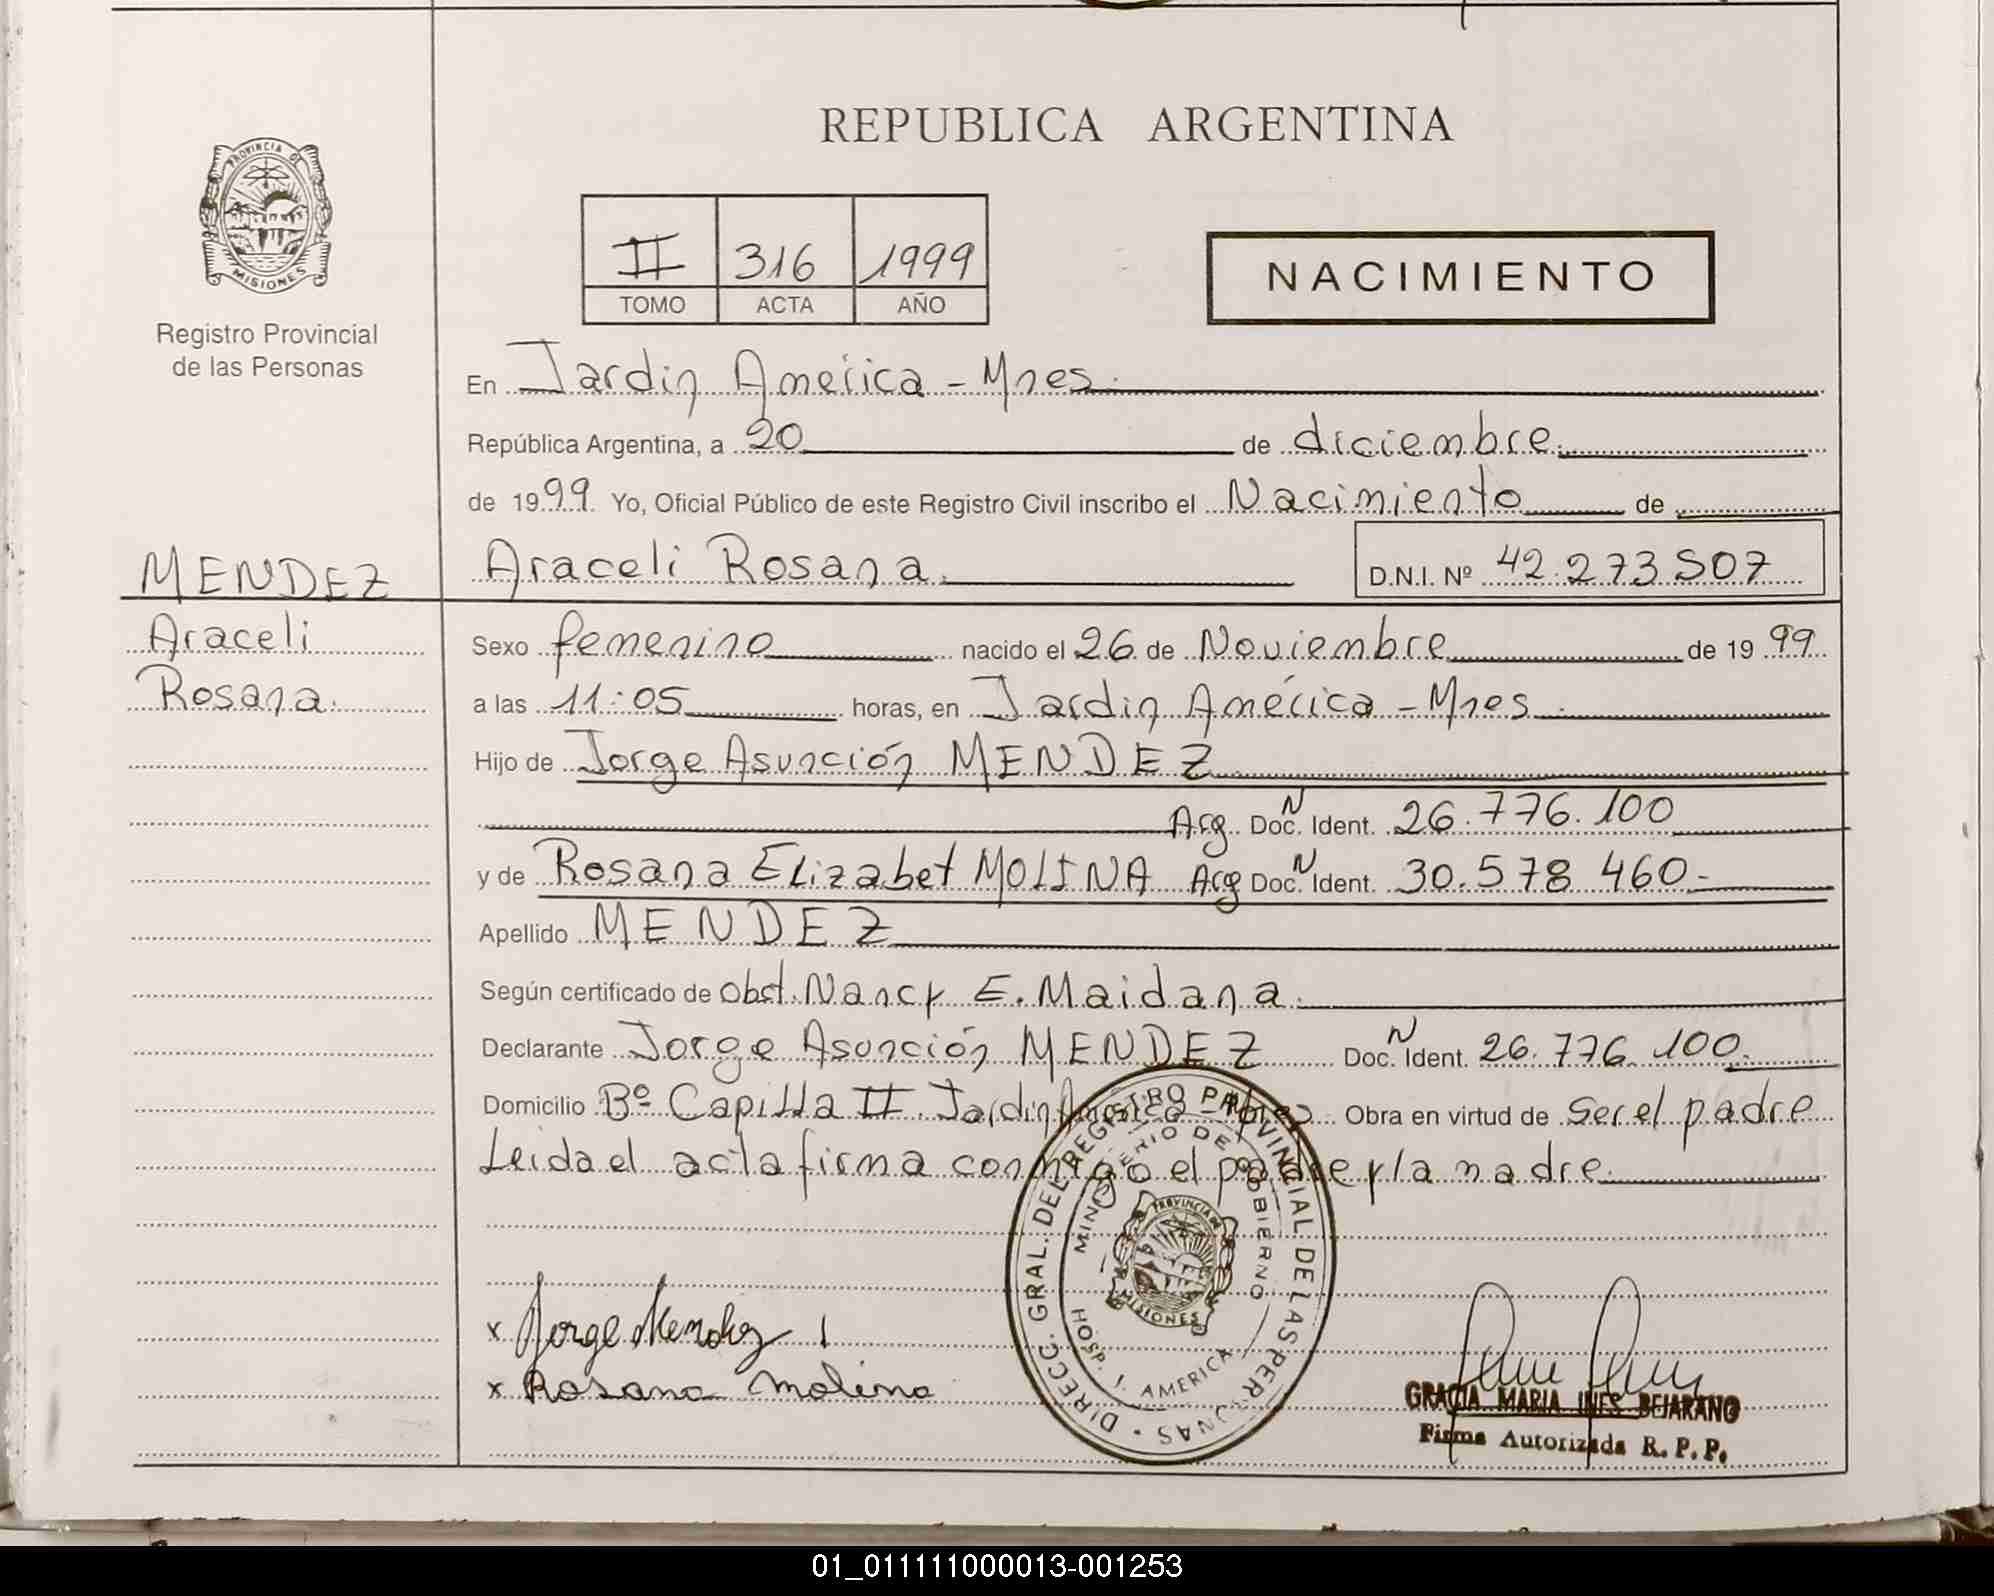 REPUBLICA ARGENTINA
PROVINCIA DE
MISIONES
Registro Provincial
de las Personas
II 316 1999
TOMO ACTA AÑO
NACIMIENTO
En Jardin América - Mnes.
República Argentina, a 20 de diciembre.
de 1999. Yo, Oficial Público de este Registro Civil inscribo el Nacimiento de
MENDEZ
Araceli
Rosana.
Araceli Rosana. D.N.I. Nº 42.273.507
Sexo femenino nacido el 26 de Noviembre de 1999
a las 11:05 horas, en Jardin América - Mnes.
Hijo de Jorge Asunción MENDEZ
Arg. Doc. N Ident. 26.776.100
y de Rosana Elizabet MOLINA Arg Doc. N Ident. 30.578 460.-
Apellido MENDEZ
Según certificado de obst. Nancy E. Maidana.
Declarante Jorge Asunción MENDEZ Doc. N Ident. 26.776.100.
Domicilio Bº Capilla II Jardin América - Mnes Obra en virtud de Ser el padre
Leida el acta firma conmigo el padre y la madre.
DIRECC. GRAL. DEL REGISTRO PROVINCIAL DE LAS PERSONAS
MINISTERIO DE GOBIERNO
PROVINCIA DE
MISIONES
HOSP. J. AMERICA
x Jorge Mendez
x Rosana Molina
GRACIA MARIA INES BEJARANO
Firma Autorizada R. P. P.
01_011111000013-001253